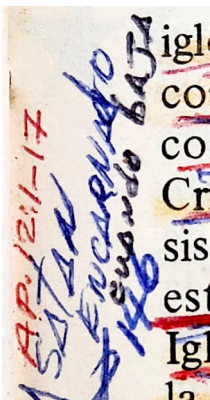 Ap. 12:1-17
SATAN
ENCARNADO
cuando BAJA
igl
co
co
Cr
sis
est
Igl
la